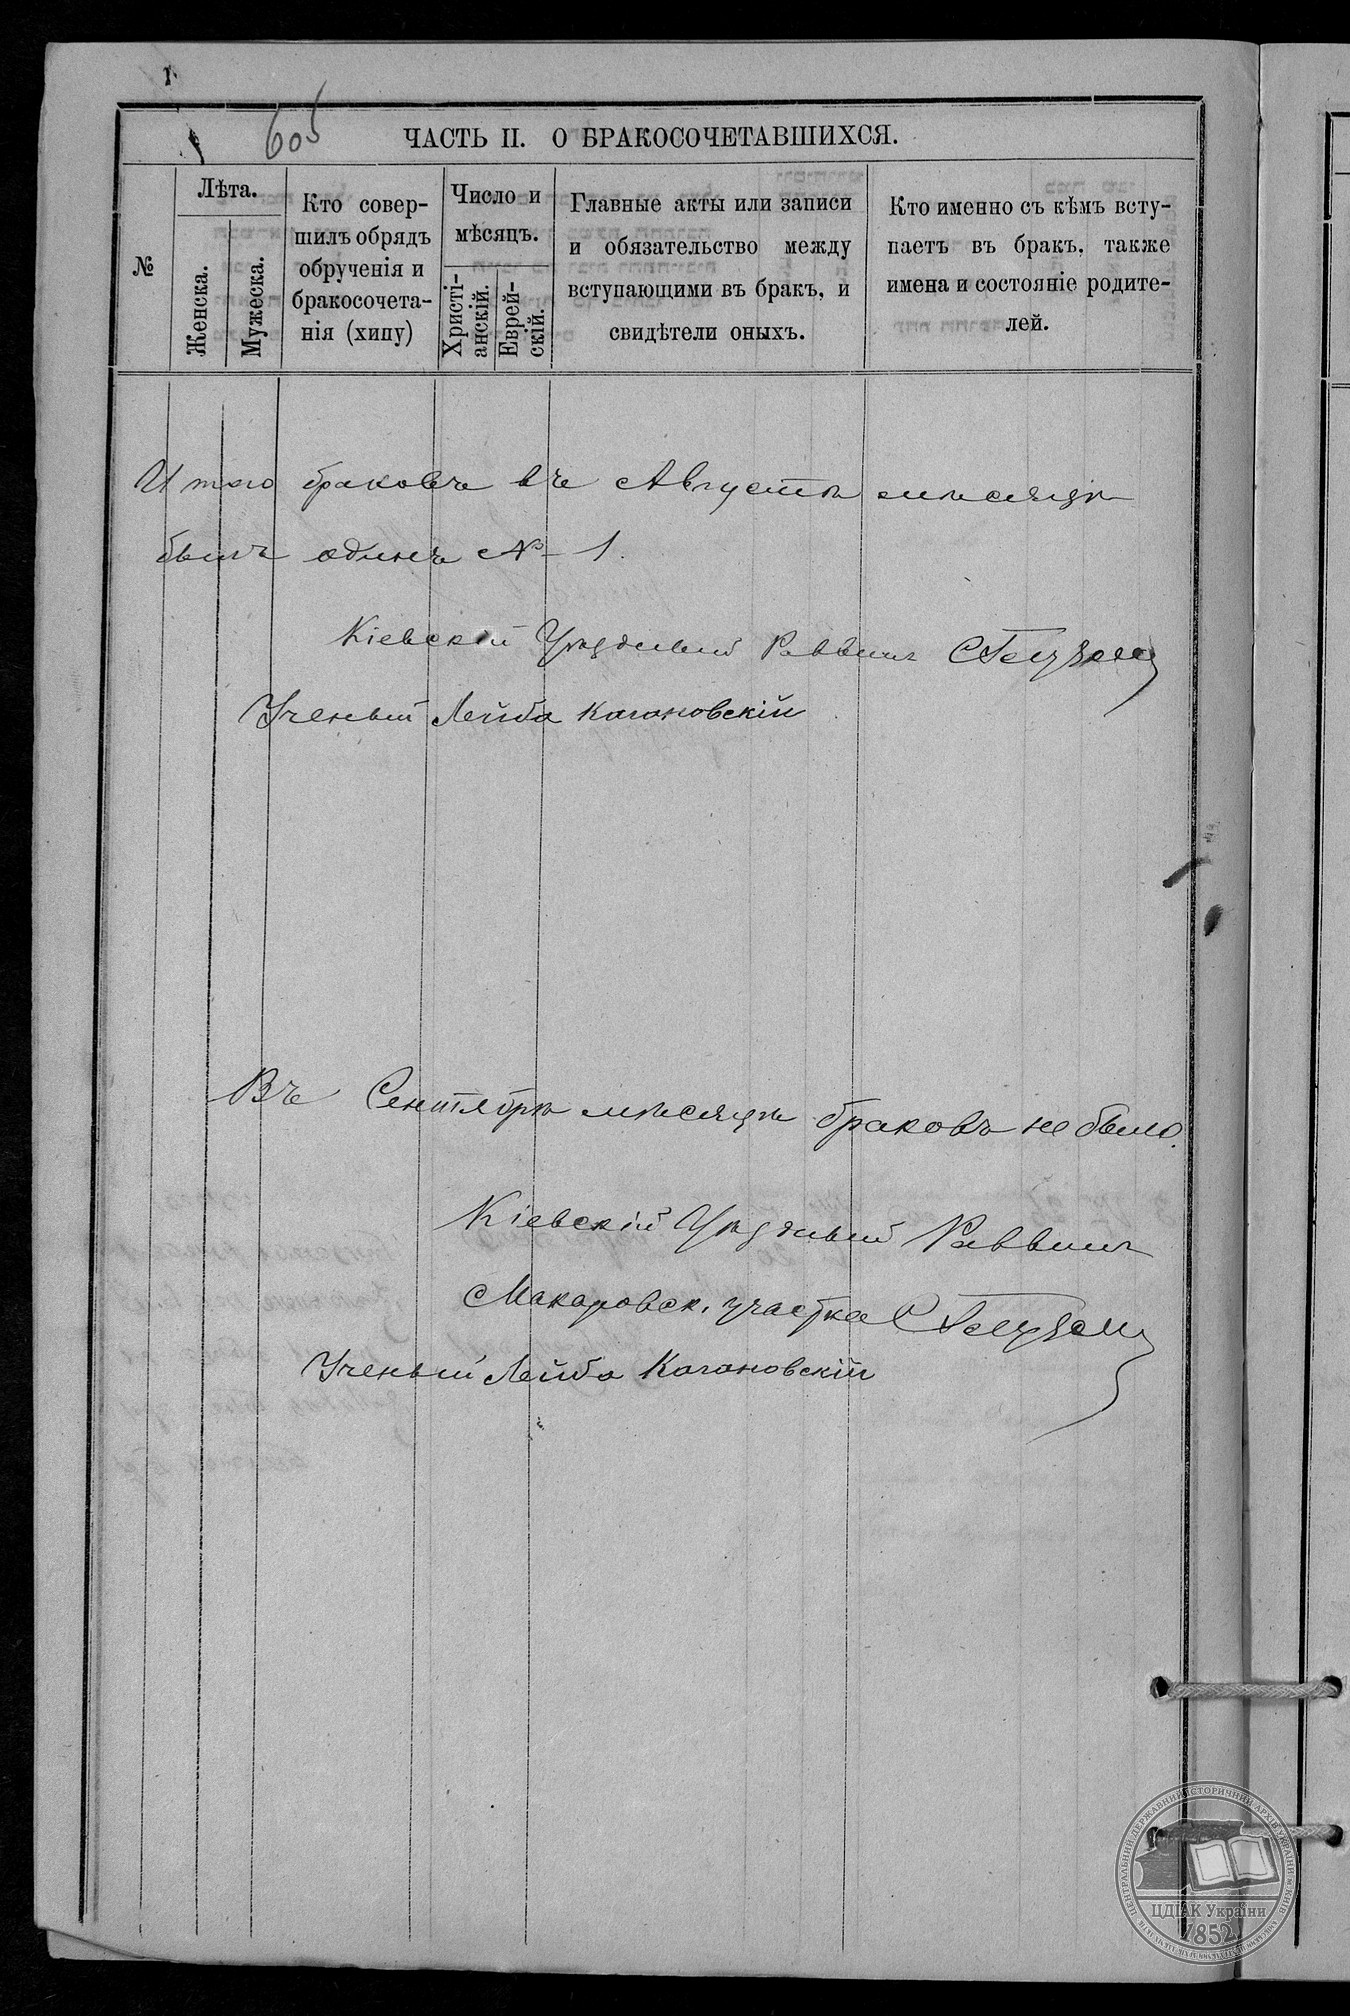 1
605
ЧАСТЬ II. О БРАКОСОЧЕТАВШИХСЯ.
№
Лѣта.
Женска.
Мужеска.
Кто совер-
шилъ обрядъ
обрученія и
бракосочета-
нія (хипу)
Число и
мѣсяцъ.
Христі-
анскій.
Еврей-
скій.
Главные акты или записи
и обязательство между
вступающими въ бракъ, и
свидѣтели оныхъ.
Кто именно съ кѣмъ всту-
паетъ въ бракъ, также
имена и состояніе родите-
лей.
Итого браковъ въ Августѣ мѣсяцѣ
былъ одинъ № 1.
Кіевскій Уѣздный Раввинъ
Ученый Лейба Кагановскій
Въ Сентябрѣ мѣсяцѣ браковъ не было.
Кіевскій Уѣздный Раввинъ
Макаровск. участка
Ученый Лейба Кагановскій
ЦЕНТРАЛЬНИЙ ДЕРЖАВНИЙ ІСТОРИЧНИЙ АРХІВ УКРАЇНИ, м. КИЇВ
ЦДІАК України
1852